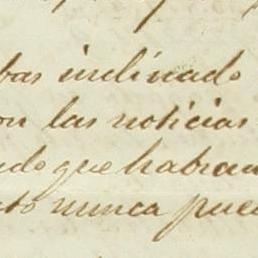 bas inclinado
on las noticias
ndo que habian
nto nunca pue